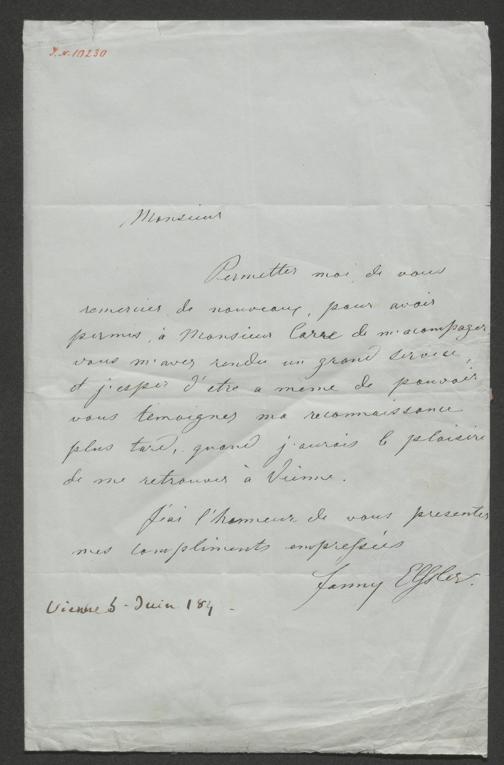 J.N. 10230
Monsieur
Permettes moi de vous
remercier de nouveaux, pour avoir
permis, à Monsieur Carré de m'acompager
vous m'aver rendu un grand service,
et j'espir d'etre a même de pouvoir
vous témoigner ma reconnaissance
plus tard, quand j'aurois le plaisire
de me retrouver à Vienne.
J'ai l'honneur de vous presenter
mes compliments empressées
Fanny Elssler.
Vienne 5 - Juin 184 -